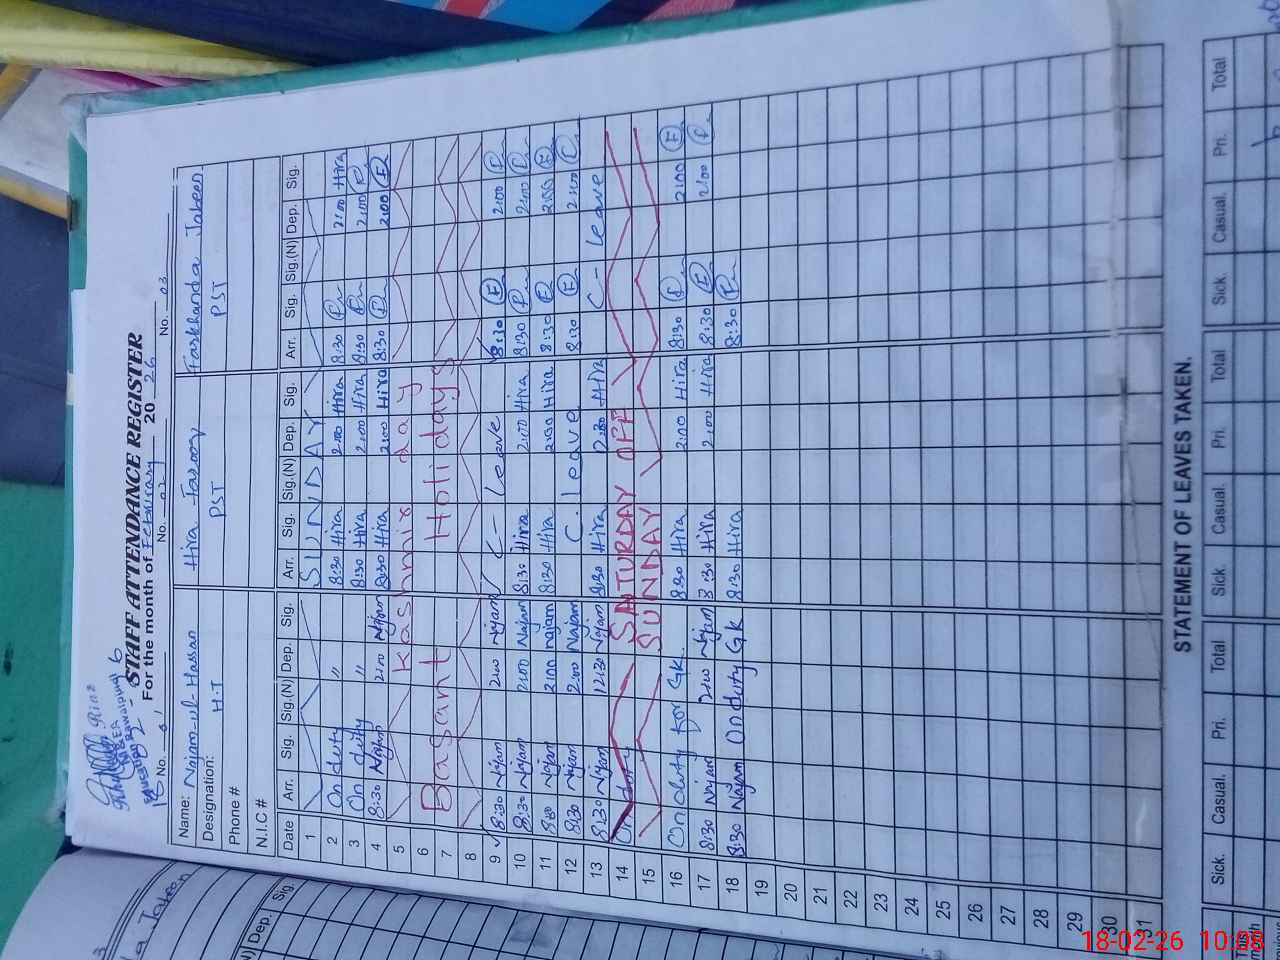 STAFF ATTENDANCE REGISTER
For the month of February 2026
No. 01 No. 02 No. 03
Name: Najam-ul-Hassan Hira Farooq Farkhanda Jabeen
Designation: H.T PST PST
Phone #
N.I.C #
Date Arr. Sig. Sig.(N) Dep. Sig. Arr. Sig. Sig.(N) Dep. Sig. Arr. Sig. Sig.(N) Dep. Sig.
1 SUNDAY
2 On duty " 8:30 Hira 2:00 Hira 8:30 2:00 Hira
3 On duty " 8:30 Hira 2:00 Hira 8:30 2:00
4 8:30 Najam 2:00 Najam 8:30 Hira 2:00 Hira 8:30 2:00
5 Kashmir day
6
7 Basant Holidays
8
9 8:30 Najam 2:00 Najam C- Leave 8:30 2:00
10 8:30 Najam 2:00 Najam 8:30 Hira 2:00 Hira 8:30 2:00
11 8:30 Najam 2:00 Najam 8:30 Hira 2:00 Hira 8:30 2:00
12 8:30 Najam 2:00 Najam C. leave 8:30 2:00
13 8:30 Najam 12:30 Najam 8:30 Hira Hira C- leave
14 On duty SATURDAY OFF
15 SUNDAY
16 On duty For GK. 8:30 Hira 2:00 Hira 8:30 2:00
17 8:30 Najam 2:00 Najam 8:30 Hira 2:00 Hira 8:30 2:00
18 8:30 Najam On duty GK 8:30 Hira 8:30
19
20
21
22
23
24
25
26
27
28
29
30
31
STATEMENT OF LEAVES TAKEN.
Sick. Casual. Pri. Total Sick Casual. Pri. Total Sick Casual. Pri. Total
Dep. Sig.
18-02-26 10:08